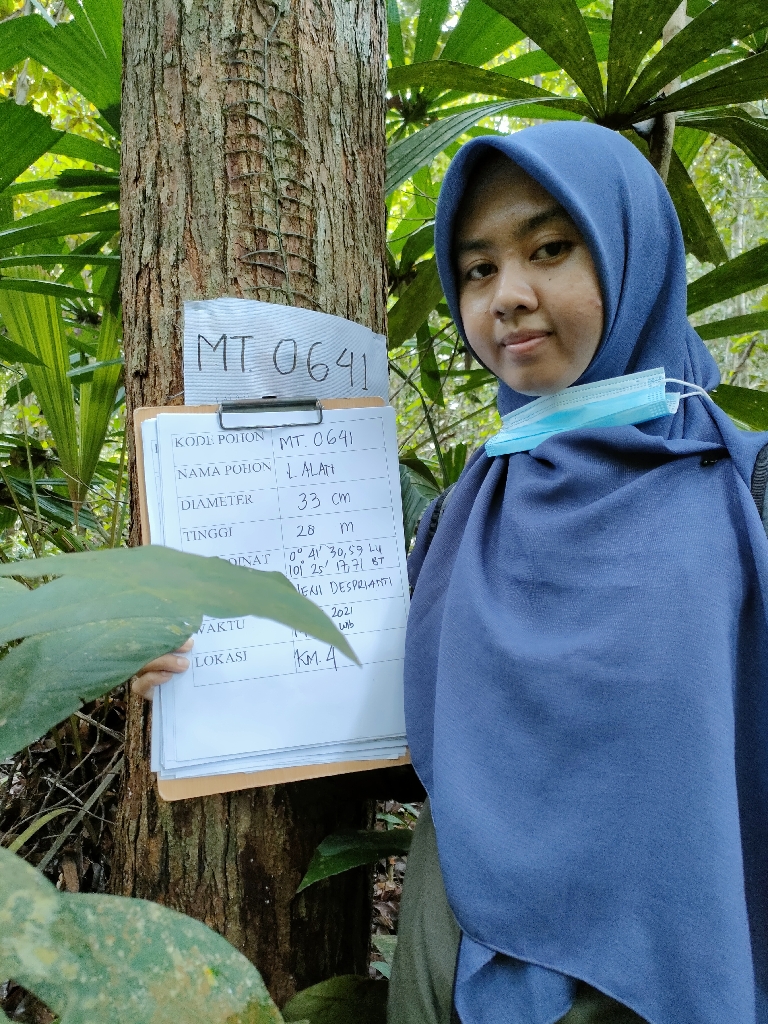 MT. 0641
KODE POHON MT. 0641
NAMA POHON L. ALAN
DIAMETER 33 CM
TINGGI 28 M
0° 41' 30,59 LU
101° 25' 17,71 BT
DESPRIANTI
WAKTU 2021
WIB
LOKASI KM. 4